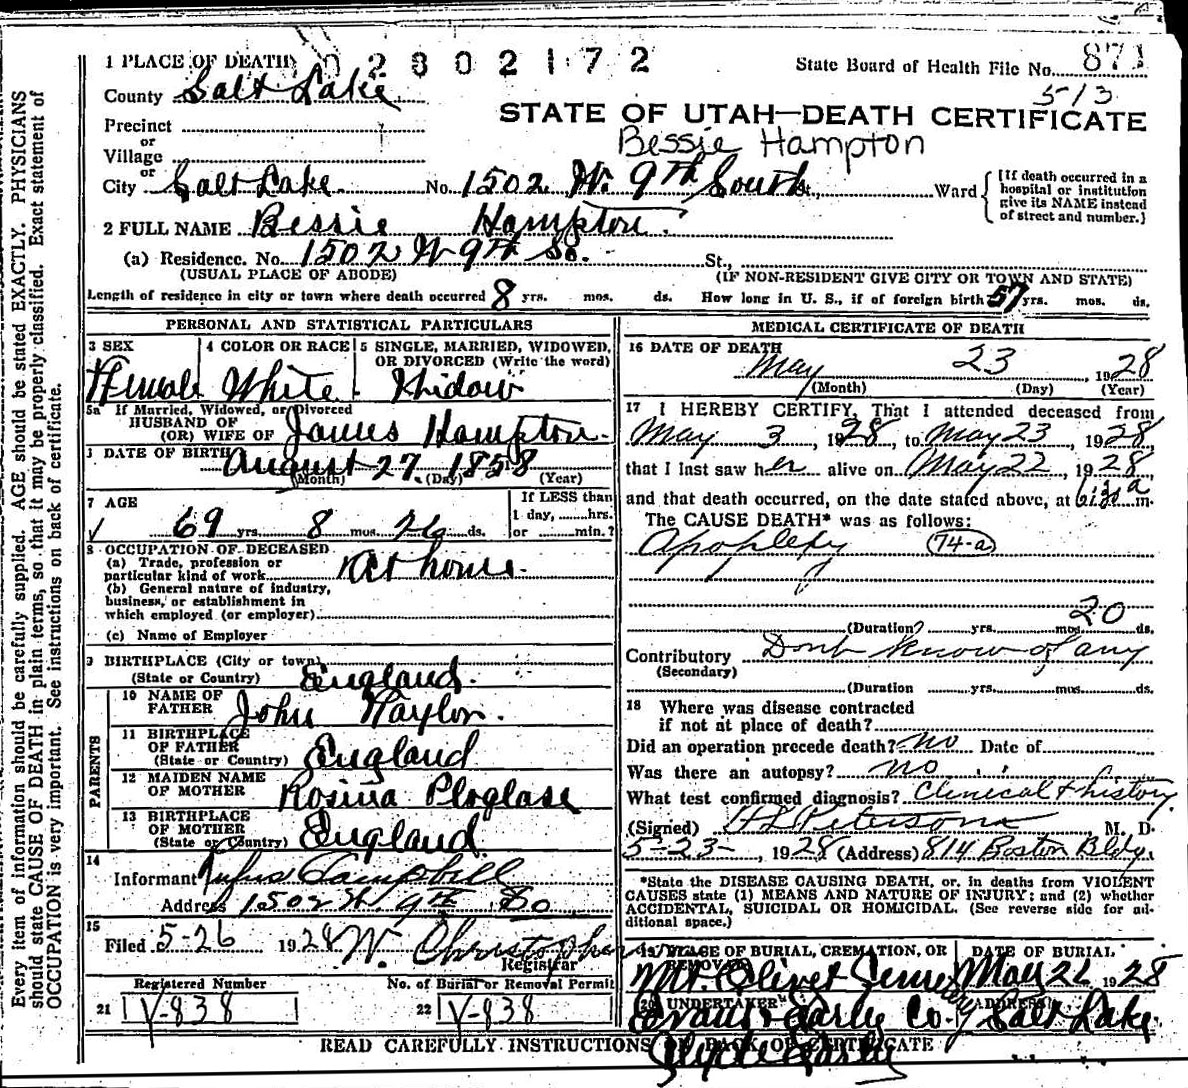 1 PLACE OF DEATH 0 2 8 0 2 1 7 2
State Board of Health File No. 871
513
County Salt Lake
STATE OF UTAH—DEATH CERTIFICATE
Precinct
or
Bessie Hampton
Village
or
City Salt Lake. No. 1502 W. 9th South St., Ward
{If death occurred in a hospital or institution give its NAME instead of street and number.}
2 FULL NAME Bessie Hampton.
(a) Residence. No. 1502 W 9th So. St.,
(USUAL PLACE OF ABODE) (IF NON-RESIDENT GIVE CITY OR TOWN AND STATE)
Length of residence in city or town where death occurred 8 yrs. mos. ds. How long in U. S., if of foreign birth 57 yrs. mos. ds.
PERSONAL AND STATISTICAL PARTICULARS
3 SEX 4 COLOR OR RACE 5 SINGLE, MARRIED, WIDOWED, OR DIVORCED (Write the word)
Female White Widow
5a If Married, Widowed, or Divorced
HUSBAND OF
(OR) WIFE OF James Hampton.
DATE OF BIRTH August 27. 1858
(Month) (Day) (Year)
7 AGE
If LESS than
1 day, ......hrs.
or ......min.?
√ 69 yrs. 8 mos. 26 ds.
8 OCCUPATION OF DECEASED
(a) Trade, profession or
particular kind of work At home.
(b) General nature of industry,
business, or establishment in
which employed (or employer)
(c) Name of Employer
9 BIRTHPLACE (City or town)
(State or Country) England.
PARENTS
10 NAME OF
FATHER John Naylor.
11 BIRTHPLACE
OF FATHER
(State or Country) England
12 MAIDEN NAME
OF MOTHER Rosina
13 BIRTHPLACE
OF MOTHER
(State or Country) England
14
Informant Rufus Campbell
Address 1502 W 9th So
15
Filed 5-26 1928 W. Christopherson
Registrar
Registered Number No. of Burial or Removal Permit
21 V-838 22 V-838
MEDICAL CERTIFICATE OF DEATH
16 DATE OF DEATH
May 23, 1928
(Month) (Day) (Year)
17 I HEREBY CERTIFY, That I attended deceased from
May 3, 1928 to May 23, 1928
that I last saw her alive on May 22, 1928,
and that death occurred, on the date stated above, at a m.
The CAUSE DEATH* was as follows:
Apoplexy (74-a)
20
(Duration? yrs. mos. ds.
Contributory Dont know of any
(Secondary)
(Duration yrs. mos. ds.
18 Where was disease contracted
if not at place of death?
Did an operation precede death? no Date of
Was there an autopsy? no
What test confirmed diagnosis? Clenical & history
(Signed) Peterson, M. D.
5-23-, 1928 (Address) 814 Boston Bldg.
*State the DISEASE CAUSING DEATH, or, in deaths from VIOLENT
CAUSES state (1) MEANS AND NATURE OF INJURY; and (2) whether
ACCIDENTAL, SUICIDAL OR HOMICIDAL. (See reverse side for ad-
ditional space.)
19 PLACE OF BURIAL, CREMATION, OR REMOVAL DATE OF BURIAL
Mt. Olivet Cemetery May 26 1928
20 UNDERTAKER ADDRESS
Evans & Early Co. Salt Lake
Clyde Early
READ CAREFULLY INSTRUCTIONS ON BACK OF CERTIFICATE
Every item of information should be carefully supplied. AGE should be stated EXACTLY. PHYSICIANS
should state CAUSE OF DEATH in plain terms, so that it may be properly classified. Exact statement of
OCCUPATION is very important. See instructions on back of certificate.